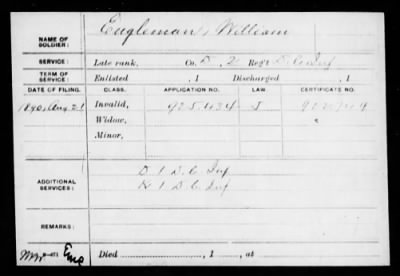 NAME OF SOLDIER: Eugleman, William
SERVICE: Late rank, Co. D, 2 Reg't D. C. Inf
TERM OF SERVICE: Enlisted , 1 Discharged , 1
DATE OF FILING. CLASS. APPLICATION NO. LAW. CERTIFICATE NO.
1890, Aug. 21 Invalid, 925.434 J
Widow,
Minor,
ADDITIONAL SERVICES: D 1 D. C. Inf
K 1 D. C. Inf
REMARKS:
Died , 1 , at